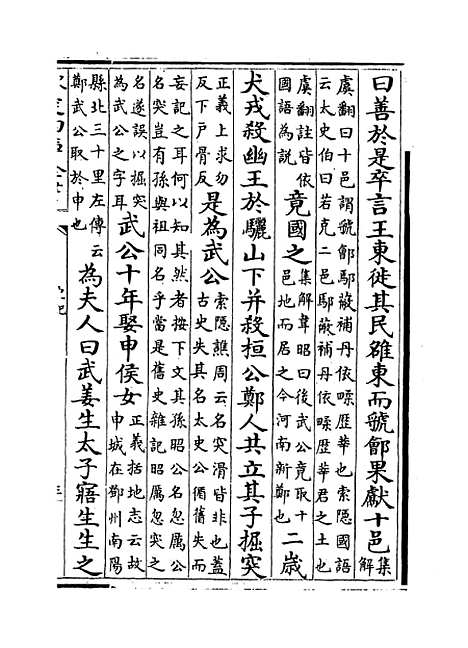 曰善於是卒言王東徙其民雒東而虢鄶果獻十邑集
解
虞翻曰十邑謂虢鄶鄢蔽補丹依㽥歴莘也索隱國語
云太史伯曰若克二邑鄢蔽補丹依㽥歴莘君之土也
虞翻註皆依
國語為說
竟國之
集解韋昭曰後武公竟取十
邑地而居之今河南新鄭也
二歳
犬戎殺幽王於驪山下并殺桓公鄭人共立其子掘突
正義上求勿
反下戸骨反
是為武公
索隱譙周云名突滑皆非也蓋
古史失其名太史公循舊失而
妄記之耳何以知其然者按下文其孫昭公名忽厲公
名突豈有孫與祖同名乎當是舊史雜記昭厲忽突之
名遂誤以掘突
為武公之字耳
武公十年娶申侯女
正義括地志云故
申城在鄧州南陽
縣北三十里左傳云
鄭武公取於申也
為夫人曰武姜生太子寤生生之